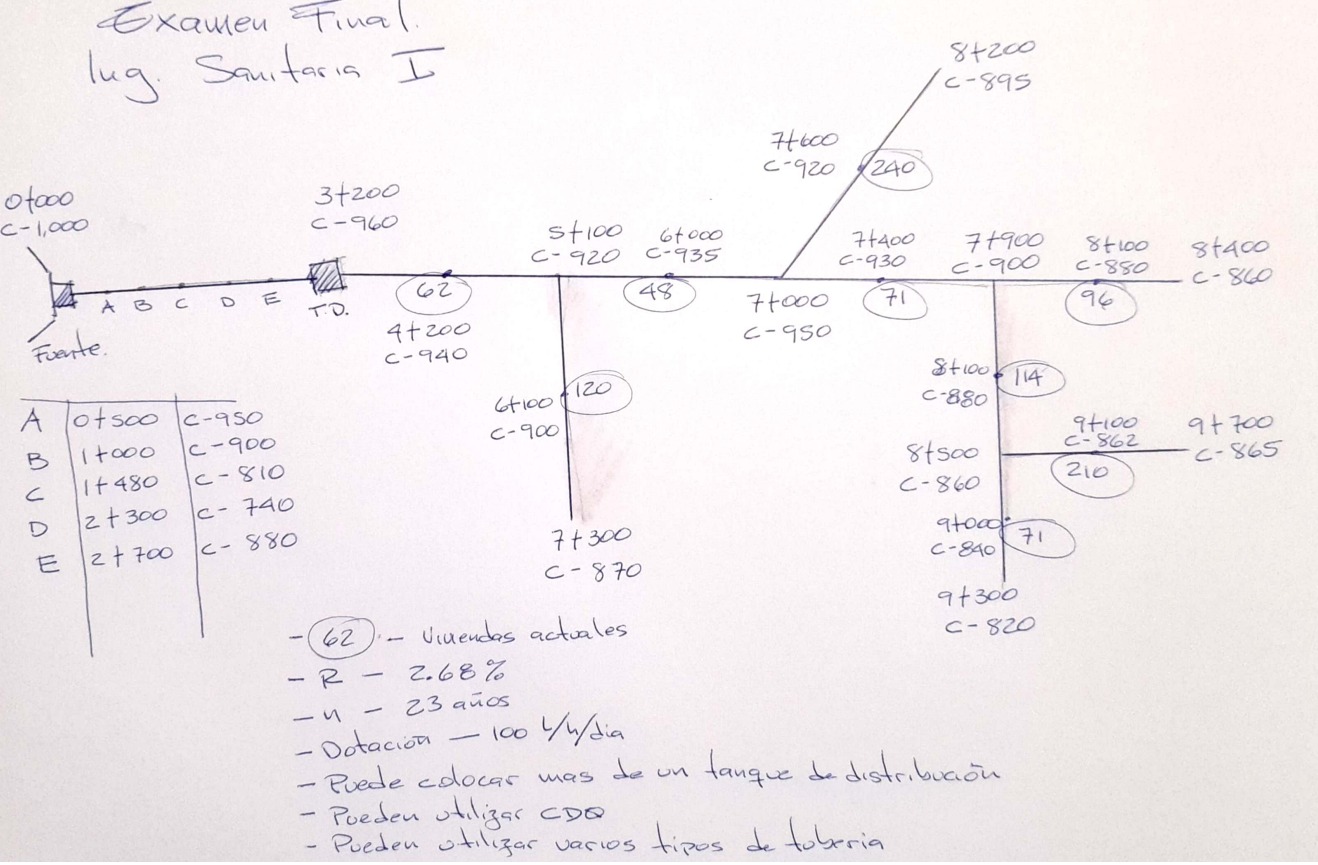 Examen Final.
Ing. Sanitaria I
0+000
C-1,000
Fuente.
A
B
C
D
E
3+200
C-960
T.D.
62
4+200
C-940
5+100
C-920
6+100
C-900
120
7+300
C-870
6+000
C-935
48
7+000
C-950
7+600
C-920
240
8+200
C-895
7+400
C-930
71
7+900
C-900
8+100
C-880
96
8+400
C-860
8+100
C-880
114
8+500
C-860
9+100
C-862
210
9+700
C-865
9+000
C-840
71
9+300
C-820
A 0+500 C-950
B 1+000 C-900
C 1+480 C-810
D 2+300 C-740
E 2+700 C-880
- 62 - Viviendas actuales
- R - 2.68%
- n - 23 años
- Dotación - 100 l/h/dia
- Puede colocar mas de un tanque de distribución
- Pueden utilizar CDQ
- Pueden utilizar varios tipos de tuberia